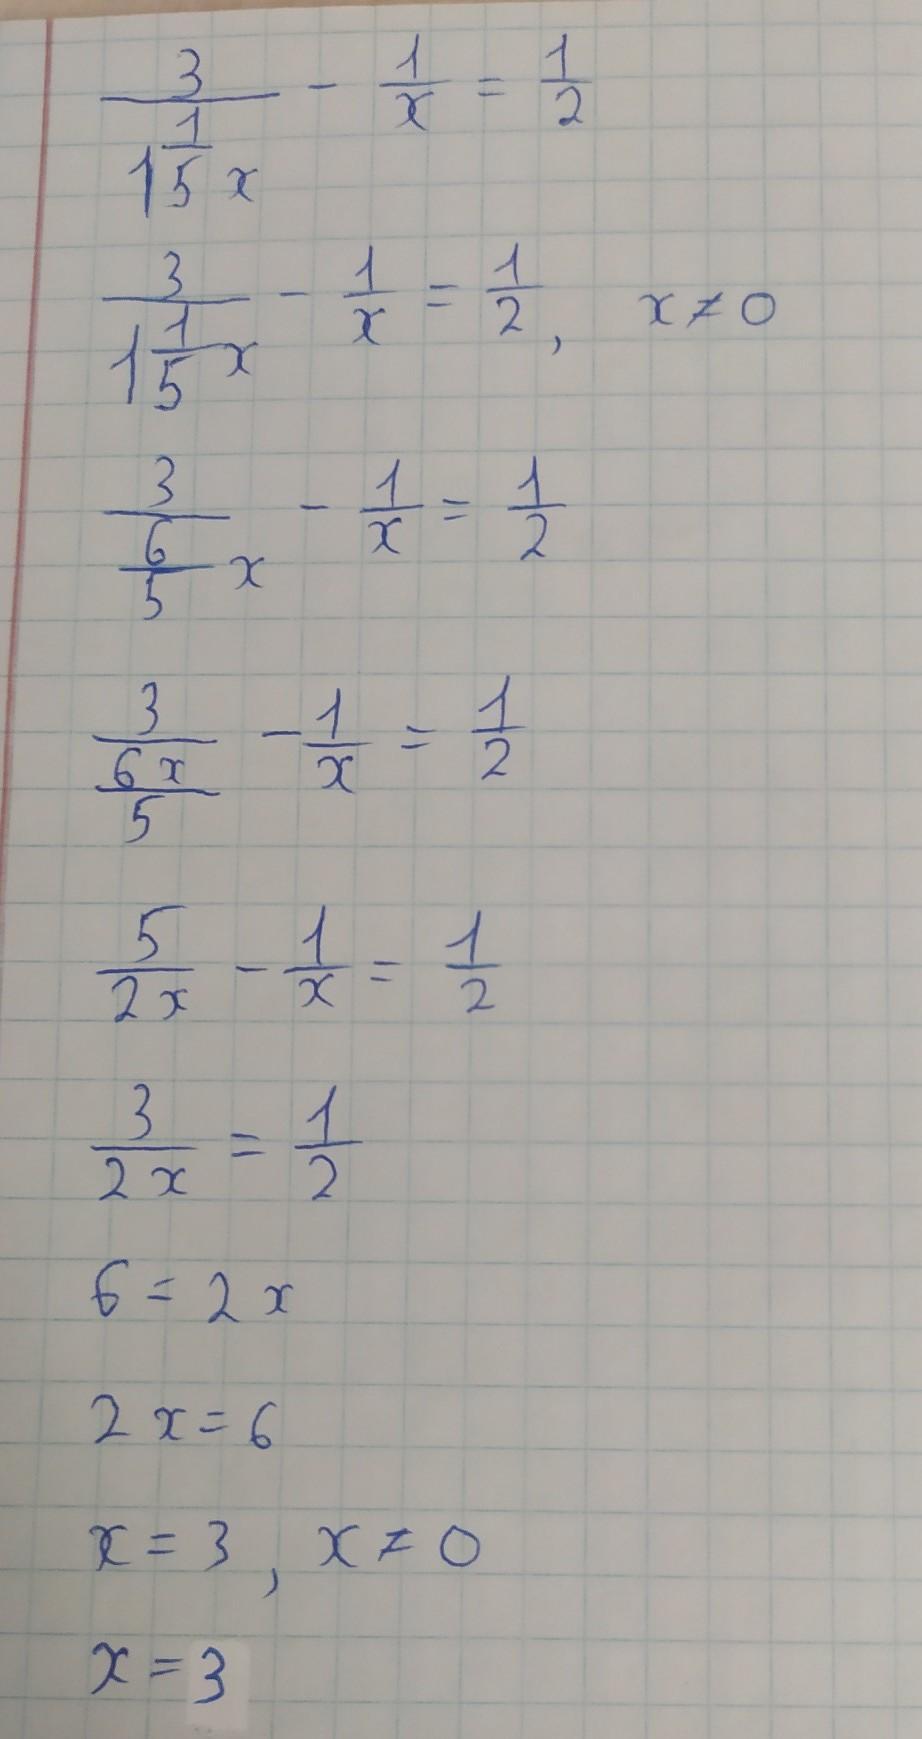 3/(1 1/5 x) - 1/x = 1/2
3/(1 1/5 x) - 1/x = 1/2, x ≠ 0
3/(6/5 x) - 1/x = 1/2
3/(6x/5) - 1/x = 1/2
5/(2x) - 1/x = 1/2
3/(2x) = 1/2
6 = 2x
2x = 6
x = 3, x ≠ 0
x = 3